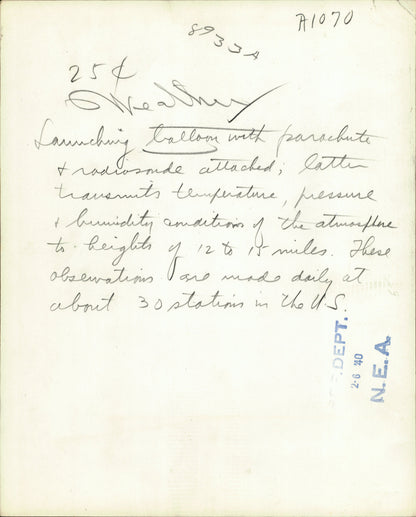 A1070
89334
25¢
Weather
Launching balloon with parachute
& radiosonde attached; latter
transmits temperature, pressure
& humidity conditions of the atmosphere
to heights of 12 to 15 miles. These
observations are made daily at
about 30 stations in the U.S.
DEPT.
2-6 40
N.E.A.